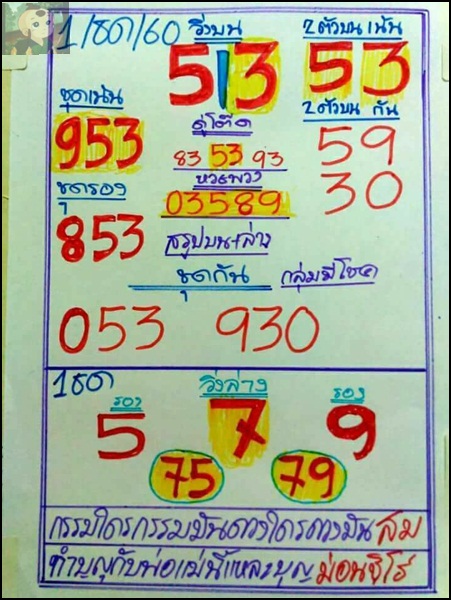 1/ธค/60
วิ่งบน
5 | 3
2ตัวบน เน้น
53
ชุดเน้น
953
2ตัวบน กัน
59
30
คู่โต๊ด
83 53 93
หวยพวง
03589
ชุดรอง
853
สรุปบน+ล่าง
ชุดกัน
กลุ่มมีโชค
053 930
1ธค
วิ่งล่าง
รอง
5
7
รอง
9
75 79
กรรมใครกรรมมันดวงใครดวงมัน
ทำบุญกับพ่อแม่นี้แหละบุญ